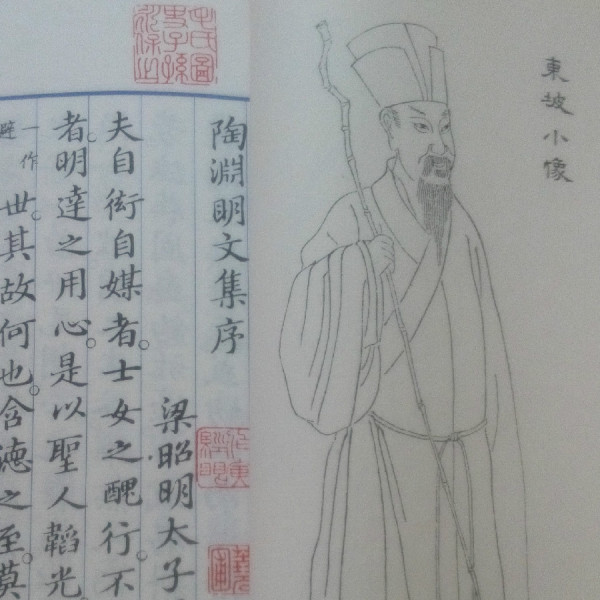 東坡小像
毛氏圖
史子孫
永保之
陶淵明文集序
梁昭明太子
夫自衒自媒者。士女之醜行。不
者。明達之用心。是以聖人韜光
一作
避
世。其故何也。含德之至。莫